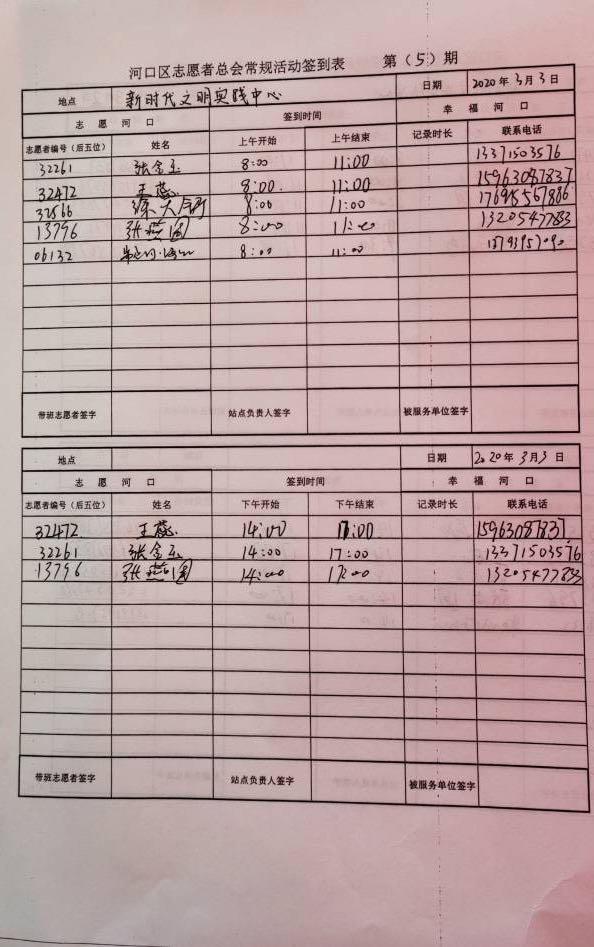 河口区志愿者总会常规活动签到表 第（5）期
地点 新时代文明实践中心 日期 2020年3月3日
志愿河口 签到时间 幸福河口
志愿者编号（后五位） 姓名 上午开始 上午结束 记录时长 联系电话
32261 张金玉 8:00 11:00 13371503576
32472 王蕊 8:00 11:00 15963087837
32566 8:00 11:00 17695567886
13796 张燕圆 8:00 11:00 13205477833
06132 8:00 11:00
带班志愿者签字 站点负责人签字 被服务单位签字
地点 日期 2020年3月3日
志愿河口 签到时间 幸福河口
志愿者编号（后五位） 姓名 下午开始 下午结束 记录时长 联系电话
32472 王蕊 14:00 17:00 15963087837
32261 张金玉 14:00 17:00 13371503576
13796 张燕圆 14:00 17:00 13205477833
带班志愿者签字 站点负责人签字 被服务单位签字